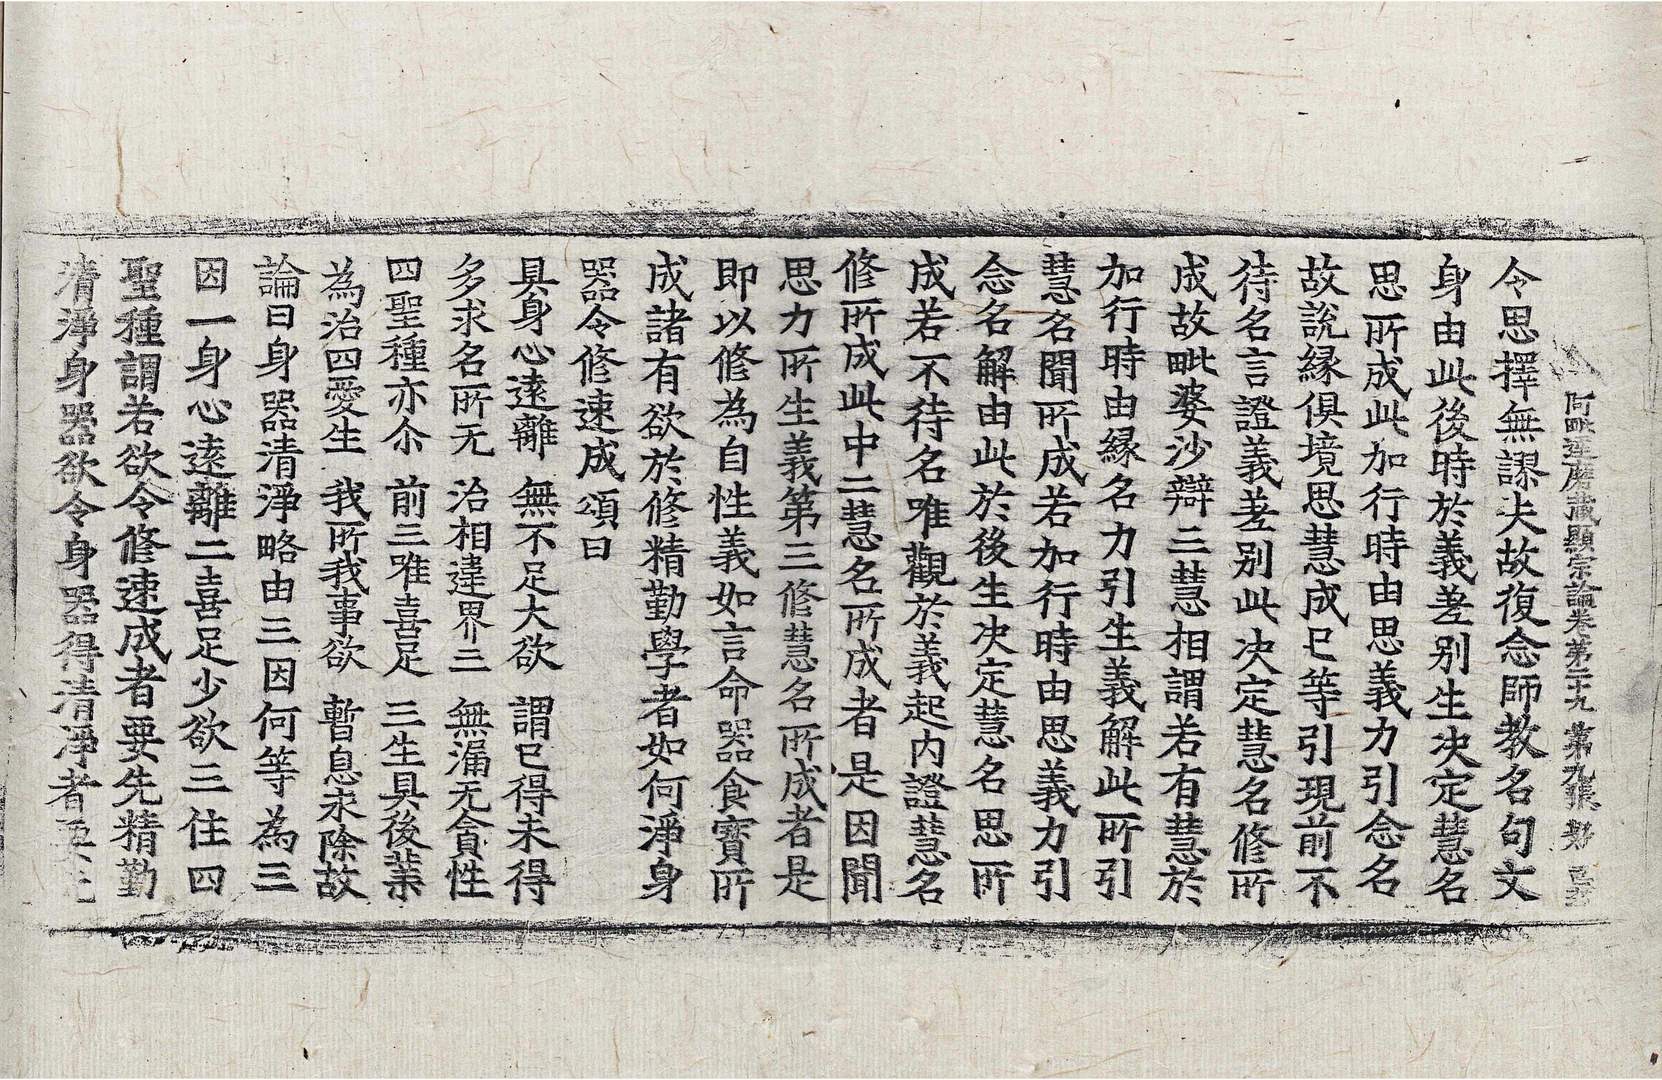 阿毗達磨藏顯宗論卷第二十九 第九張
令思擇無謬失故復念師教名句文
身由此後時於義差别生决定慧名
思所成此加行時由思義力引念名
故說緣俱境思慧成已等引現前不
待名言證義差别此决定慧名修所
成故毗婆沙辯三慧相謂若有慧於
加行時由緣名力引生義解此所引
慧名聞所成若加行時由思義力引
念名解由此於後生决定慧名思所
成若不待名唯觀於義起内證慧名
修所成此中二慧名所成者是因聞
思力所生義第三修慧名所成者是
即以修為自性義如言命器食寶所
成諸有欲於修精勤學者如何淨身
器令修速成頌曰
具身心遠離 無不足大欲 謂已得未得
多求名所无 治相違界三 無漏无貪性
四聖種亦尒 前三唯喜足 三生具後業
為治四愛生 我所我事欲 暫息永除故
論曰身器清淨略由三因何等為三
因一身心遠離二喜足少欲三住四
聖種謂若欲令修速成者要先精勤
清淨身器欲令身器得清淨者